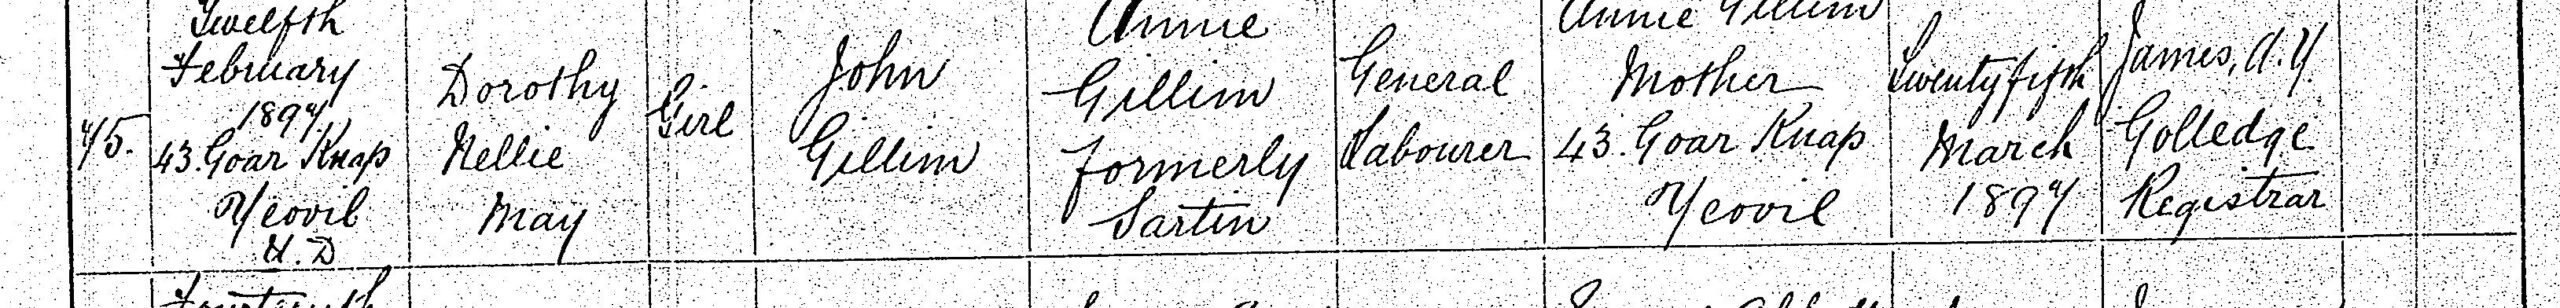 Twelfth
February
1897
43. Goar Knap
Yeovil
U.D
Dorothy
Nellie
May
Girl
John
Gillim
Annie
Gillim
formerly
Sartin
General
Labourer
Annie Gillim
Mother
43. Goar Knap
Yeovil
Twenty fifth
March
1897
James, A.Y
Golledge
Registrar